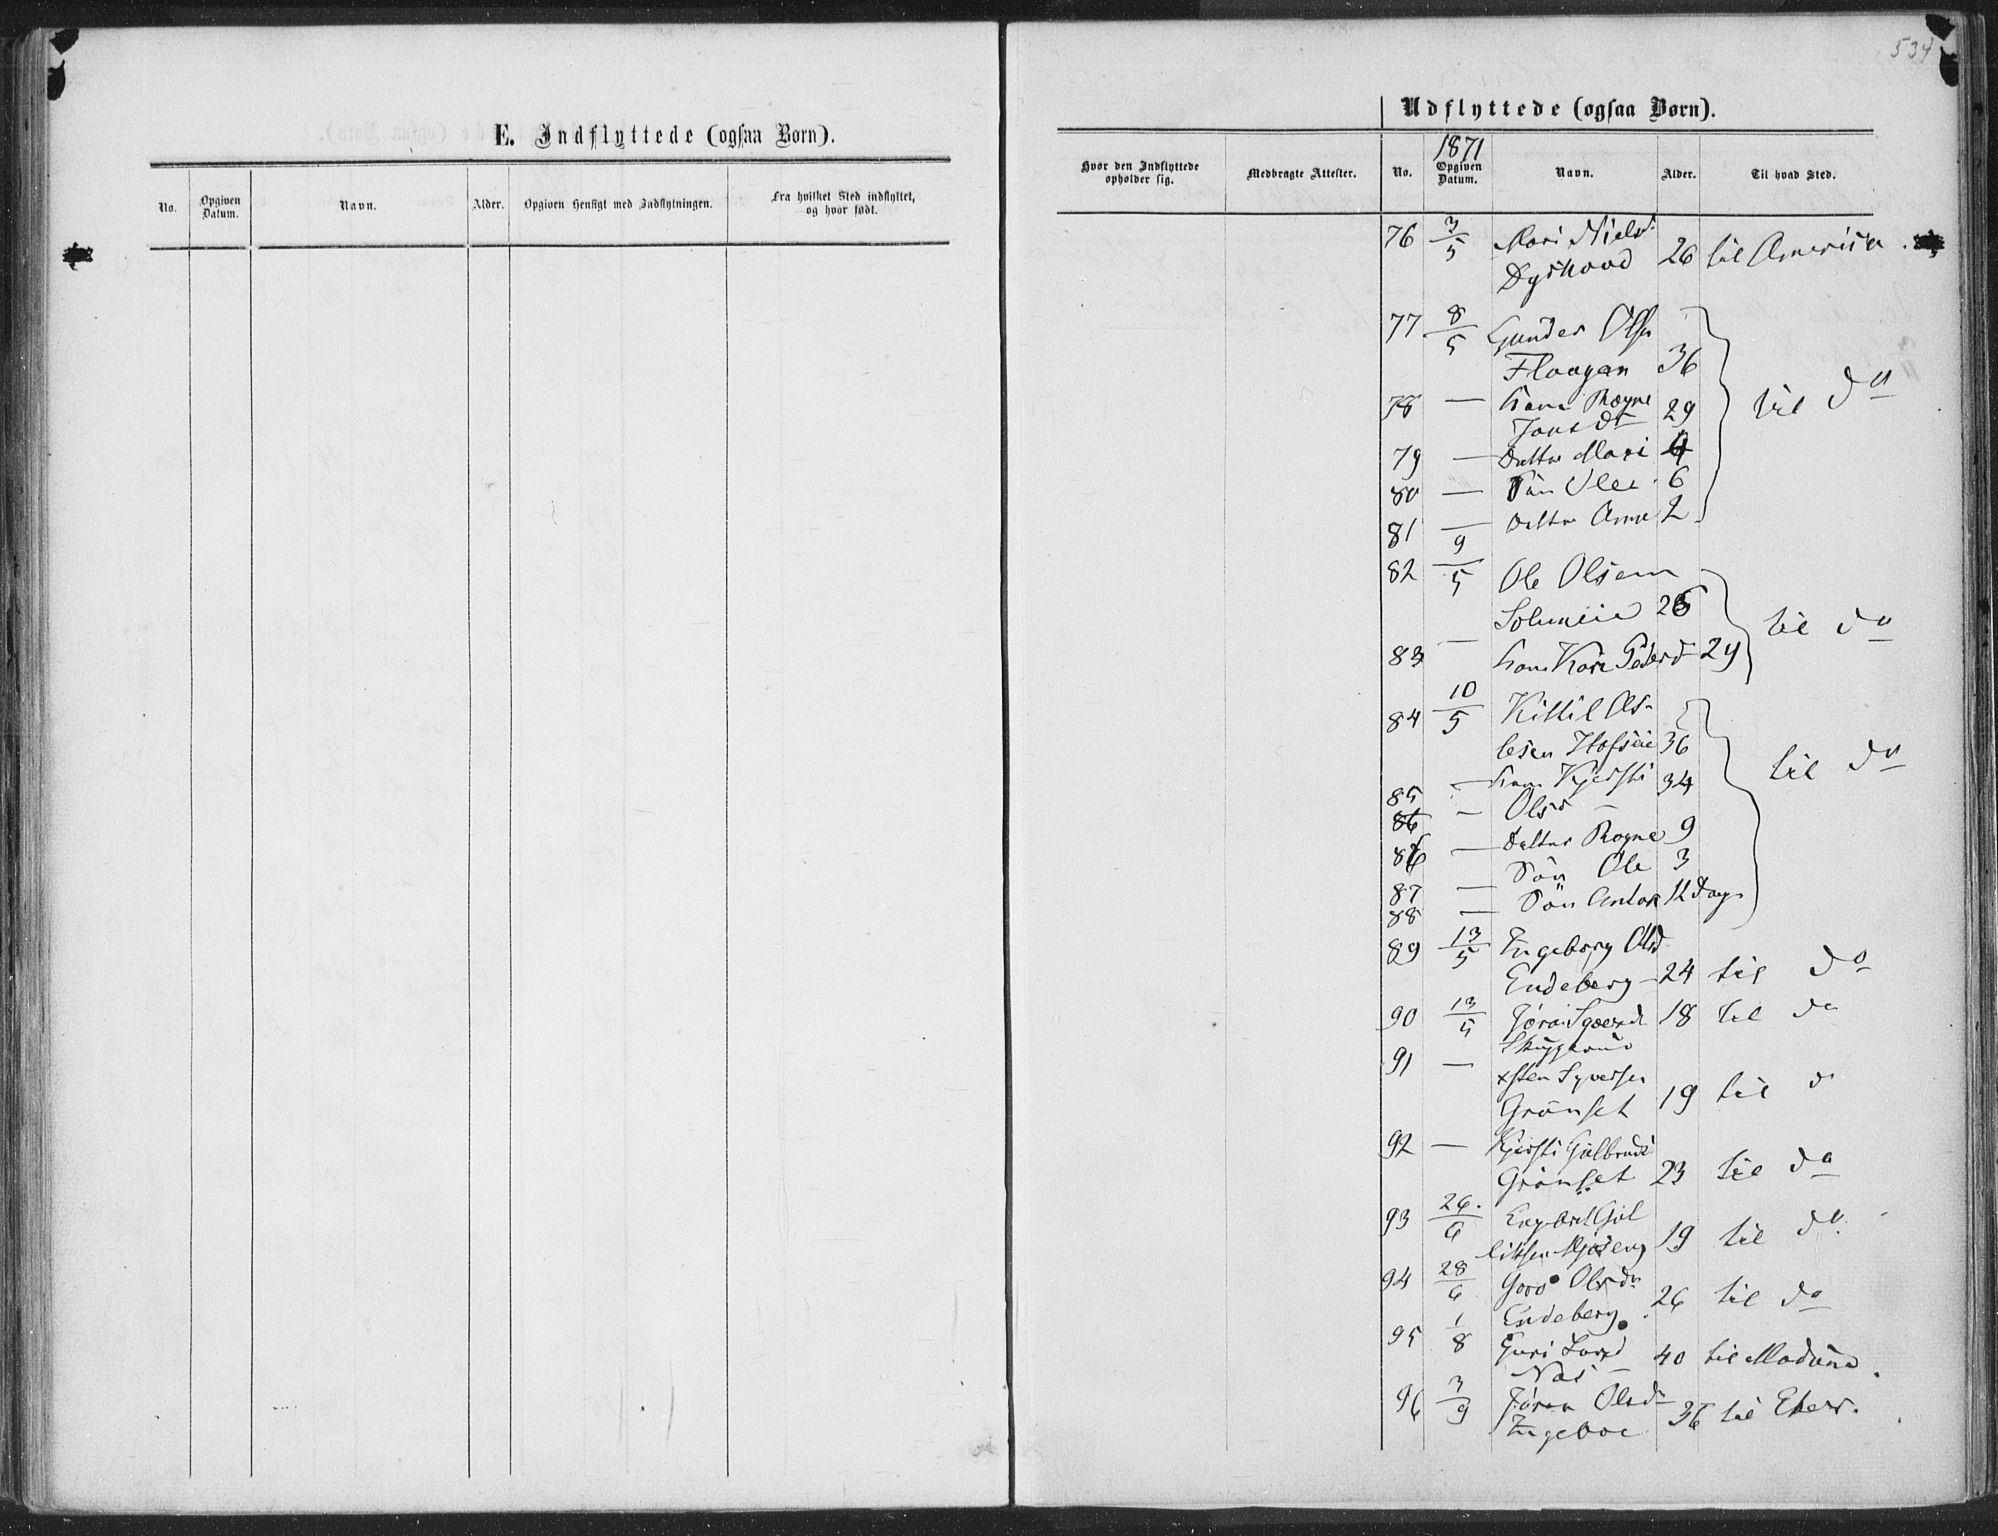 534
E. Indflyttede (ogsaa Børn).
No. Opgiven Datum. Navn. Alder. Opgiven Hensigt med Indflytningen. Fra hvilket Sted indflyttet, og hvor født.
Udflyttede (ogsaa Børn).
1871
Hvor den Indflyttede opholder sig. Medbragte Attester. No. Opgiven Datum. Navn. Alder. Til hvad Sted.
76 3/5 Mari Nielsd
26 til America.
77 8/5 Gunder Olsen
36
78 — Kone Ragne
Jonsdr 29 til do
79 — Datter Mari 4
80 — Søn Ole 6
81 — Datter Anne 2
82 9/5 Ole Olsen
til do
83 — Kone Kari Pedersd 29
84 10/5 Kittil Ols-
36
85 — Kone Kjersti 34 til do
86 — Olsd —
86 — Datter Ragne 9
87 — Søn Ole 3
88 — Søn Anton 12 Dage
89 13/5 Engeborg Olsd
Endeberg 24 til do
90 13/5 18 til do
91 — Syversen
Grönset 19 til do
92 — Kjersti Gulbrands
Grönset 23 til do
93 26/6 Engebret Gul
19 til do
94 28/6 Goro Olsdr
Endeberg 26 til do
95 1/8 Guri Larsd
Næs 40 til Modum.
96 3/9 Jöran Olsdr
36 til Eker.